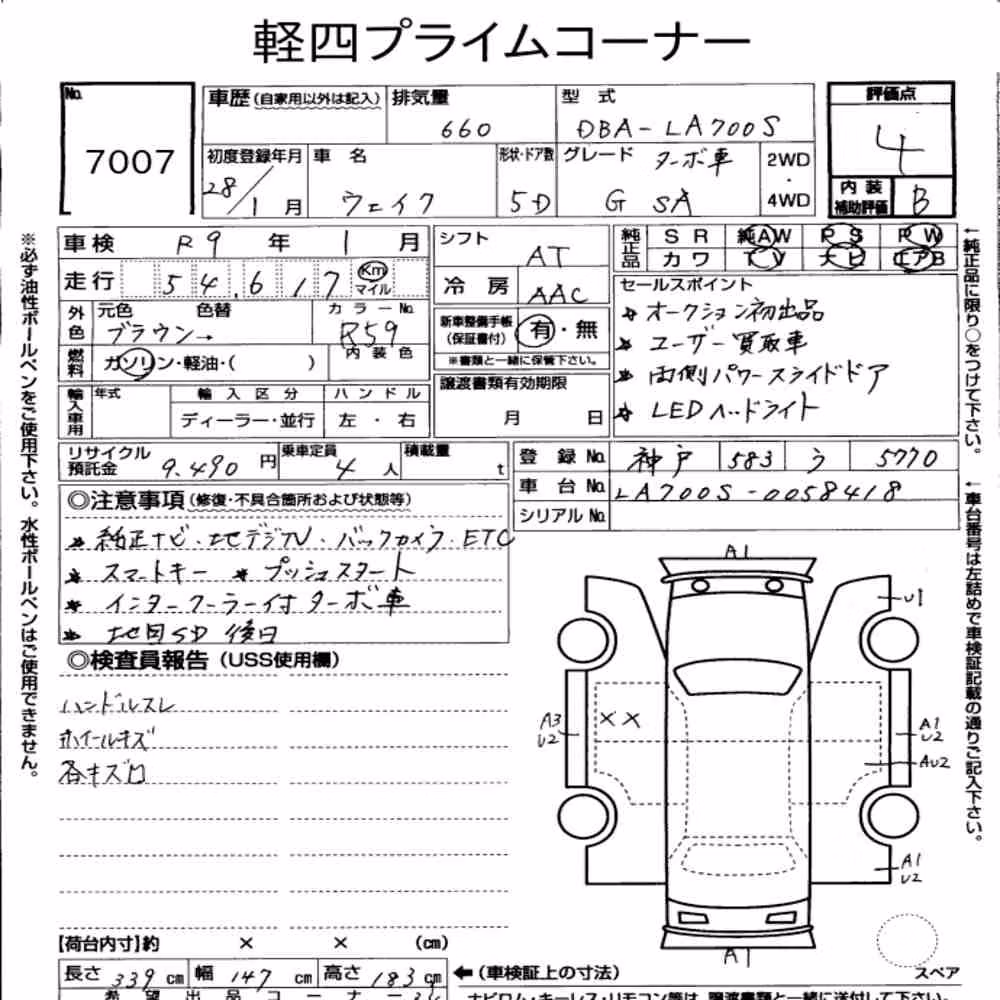 軽四プライムコーナー
No. 7007
車歴(自家用以外は記入)
排気量 660
型 式 DBA-LA700S
評価点 4
内装補助評価 B
初度登録年月 28/1月
車 名 ウェイク
形状・ドア数 5D
グレード ターボ車 G SA
2WD・4WD
車検 R9年 1月
走行 54,617 Km マイル
外色 元色 ブラウン→ 色替
カラーNo. R59
燃料 ガソリン・軽油・( )
内装色
輸入車用 年式
輸入区分 ディーラー・並行
ハンドル 左・右
シフト AT
冷房 AAC
新車整備手帳(保証書付) 有・無
※書類と一緒に保管下さい。
譲渡書類有効期限
月 日
純正品 SR 純AW PS PW
カワ TV ナビ エアB
セールスポイント
★ オークション初出品
★ ユーザー買取車
★ 両側パワースライドドア
★ LEDヘッドライト
リサイクル預託金 9,490円
乗車定員 4人
積載量 t
登録No. 神戸 583 う 5770
車台No. LA700S-0058418
シリアルNo.
◎注意事項(修復・不具合箇所および状態等)
★ 純正ナビ・地デジTV・バックカメラ・ETC
★ スマートキー ★ プッシュスタート
★ インタークーラー付ターボ車
★ 地図SD 後日
◎検査員報告(USS使用欄)
ハンドルスレ
ホイールキズ
各キズ凹
A1
U1
A3
U2
××
A1
U2
AU2
A1
U2
A1
スペア
【荷台内寸】約 × × (cm)
長さ 339cm 幅 147cm 高さ 183cm
←(車検証上の寸法)
希望出品コーナー
ナビロム・キーレス・リモコン等は、譲渡書類と一緒に送付して下さい。
※必ず油性ボールペンをご使用下さい。水性ボールペンはご使用できません。
←純正品に限り○をつけて下さい。
←車台番号は左詰めで車検証記載の通りご記入下さい。